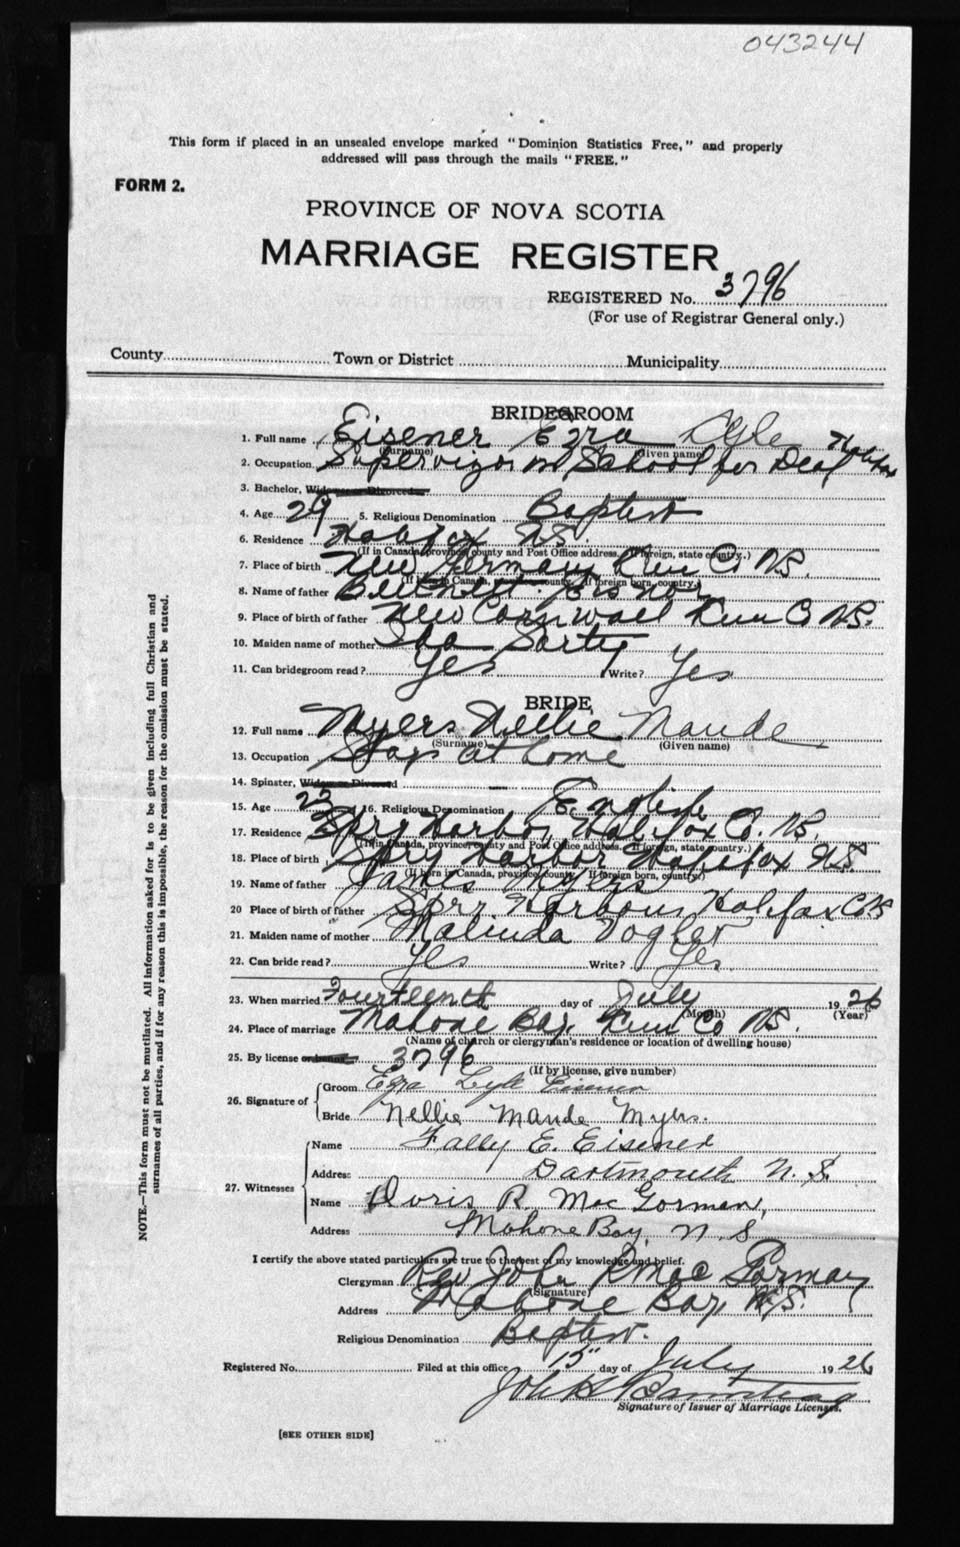 043244
This form if placed in an unsealed envelope marked "Dominion Statistics Free," and properly
addressed will pass through the mails "FREE."
FORM 2.
PROVINCE OF NOVA SCOTIA
MARRIAGE REGISTER
REGISTERED No. 3796
(For use of Registrar General only.)
County Town or District Municipality
BRIDEGROOM
1. Full name Eisener Ezra Lyle
(Surname) (Given name)
2. Occupation Supervizor in School for Deaf Halifax
3. Bachelor, Widower or Divorced
4. Age 29 5. Religious Denomination Baptist
6. Residence Halifax NS
(If in Canada, province, county and Post Office address. If foreign, state country.)
7. Place of birth New Germany Lun Co NS.
(If born in Canada, province, county. If foreign born, country.)
8. Name of father
9. Place of birth of father New Cornwall Lun Co NS.
10. Maiden name of mother
11. Can bridegroom read? Yes Write? Yes
BRIDE
12. Full name Myers Nellie Maude
(Surname) (Given name)
13. Occupation Stays at home
14. Spinster, Widow or Divorced
15. Age 23 16. Religious Denomination English
17. Residence Spry Harbor, Halifax Co. NS.
(If in Canada, province, county and Post Office address. If foreign, state country.)
18. Place of birth Spry Harbor Halifax NS
(If born in Canada, province, county. If foreign born, country.)
19. Name of father James Myers
20 Place of birth of father Spry Harbour Halifax Co NS
21. Maiden name of mother Malinda Vogler
22. Can bride read? Yes Write? Yes
23. When married Fourteenth day of July 1926
(Month) (Year)
24. Place of marriage Mahone Bay, Lun Co NS.
(Name of church or clergyman's residence or location of dwelling house)
25. By license or banns 3796
(If by license, give number)
26. Signature of
Groom Ezra Lyle Eisener
Bride Nellie Maude Myers.
27. Witnesses
Name E. Eisener
Address Dartmouth N.S.
Name Doris R. MacGorman,
Address Mahone Bay, N.S
I certify the above stated particulars are true to the best of my knowledge and belief.
Clergyman Rev John R Mac Gorman
(Signature)
Address Mahone Bay, N.S.
Religious Denomination Baptist.
Registered No. Filed at this office 15" day of July 1926
Signature of Issuer of Marriage Licenses.
[SEE OTHER SIDE]
NOTE.—This form must not be mutilated. All information asked for is to be given including full Christian and
surnames of all parties, and if for any reason this is impossible, the reason for the omission must be stated.